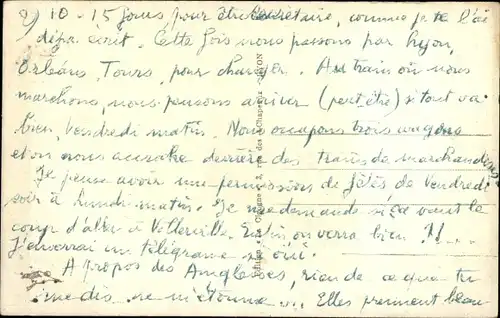 2) 10 - 15 jours pour être secrétaire, comme je te l'ai
déjà écrit. Cette fois nous passons par Lyon,
Orléans, Tours, pour changer. Au train où nous
marchons, nous pensons arriver (peut être) si tout va
bien, vendredi matin. Nous occupons trois wagons
et on nous accroche derrière des trains de marchandises
Je pense avoir une permission de fêtes de vendredi
soir à lundi matin. Je me demande si ça vaut le
coup d'aller à Villerville. Enfin, on verra bien !!....
J'enverrai un télégramme si oui.
A propos des Anglaises, rien de ce que tu
me dis ne m'étonne... Elles prennent beau